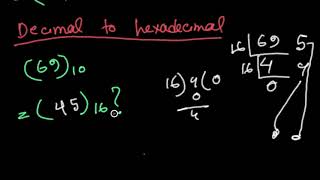 Decimal to hexadecimal
(69)10
= (45)16 ?
16) 4 (0
0
4
16 69 5
16 4 4
0